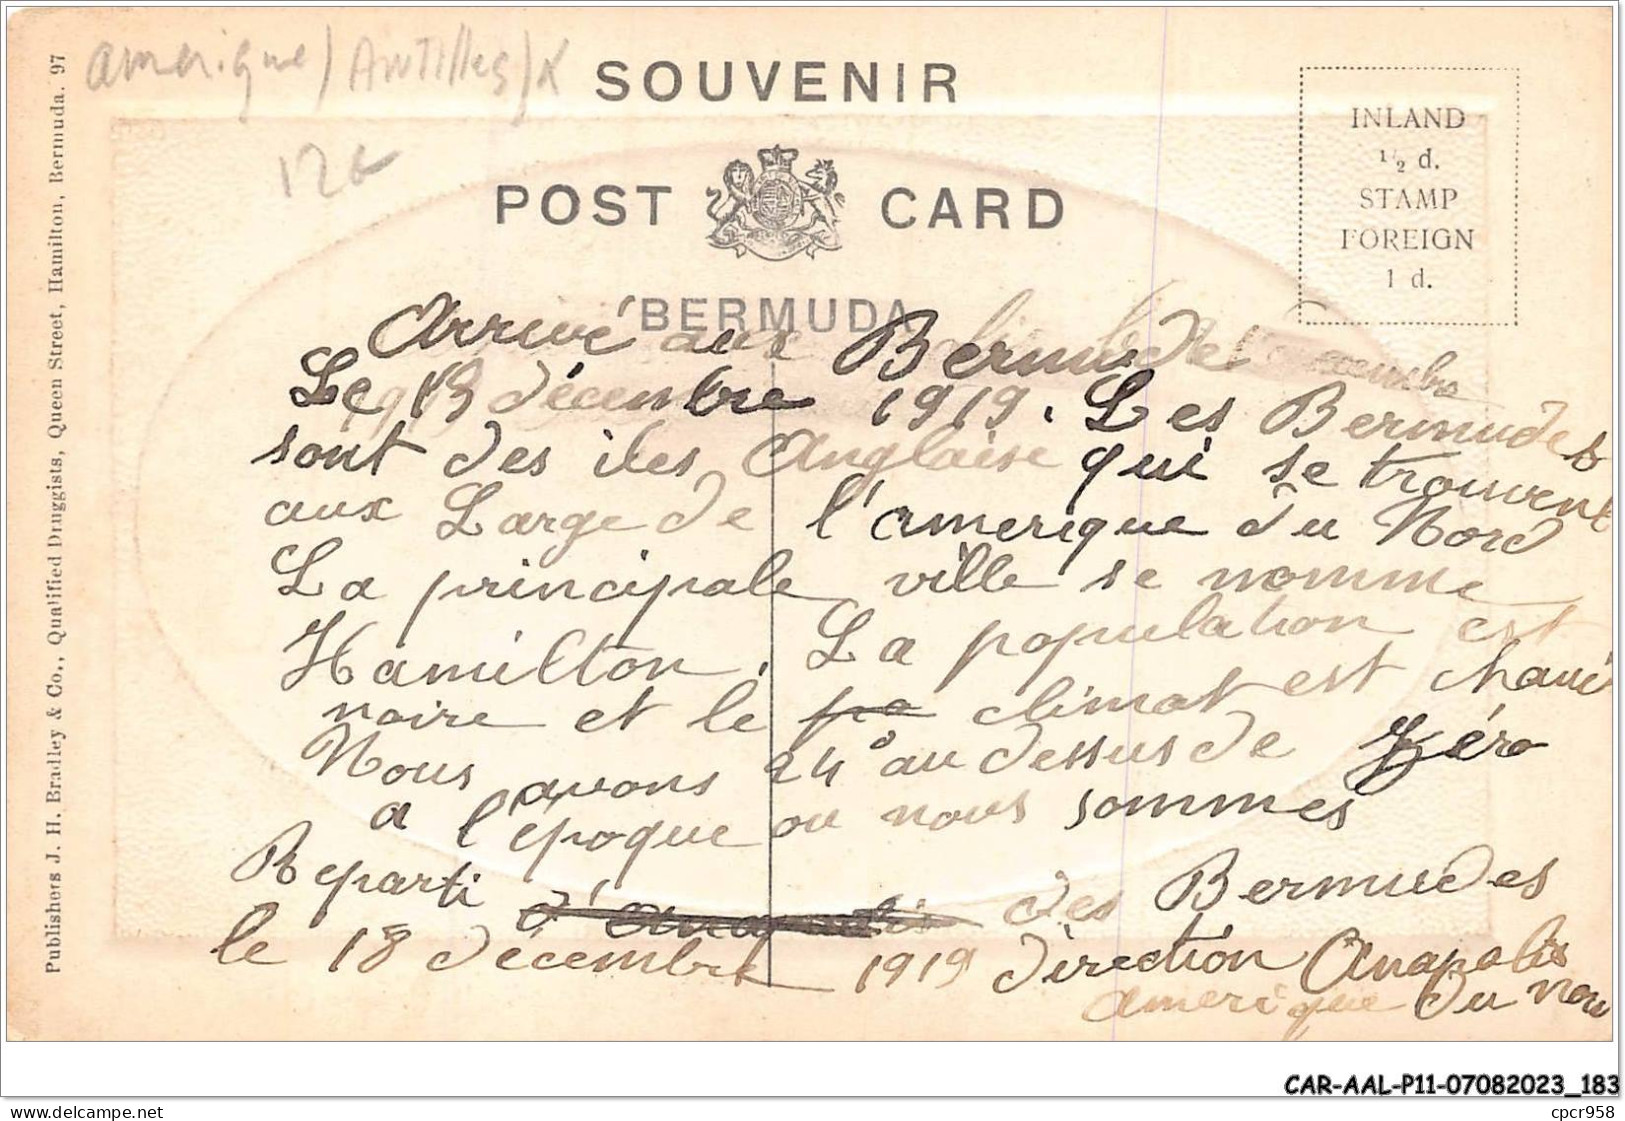 amerique / Antilles /
12€
SOUVENIR
POST CARD
BERMUDA
INLAND
1/2 d.
STAMP
FOREIGN
1 d.
Publishers J. H. Bradley & Co., Qualified Druggists, Queen Street, Hamilton, Bermuda. 97
Arrivé aux Bermudes
Le 13 décembre 1919. Les Bermudes
sont des iles Anglaise qui se trouvent
aux Large de l'amerique du Nord
La principale ville se nomme
Hamilton. La population est
noire et le climat est chaud
Nous avons 24° au dessus de zéro
a l'époque ou nous sommes
Reparti des Bermudes
le 18 décembre 1919 direction Anapolis
amerique du nord
CAR-AAL-P11-07082023_183
www.delcampe.net
cpcr958